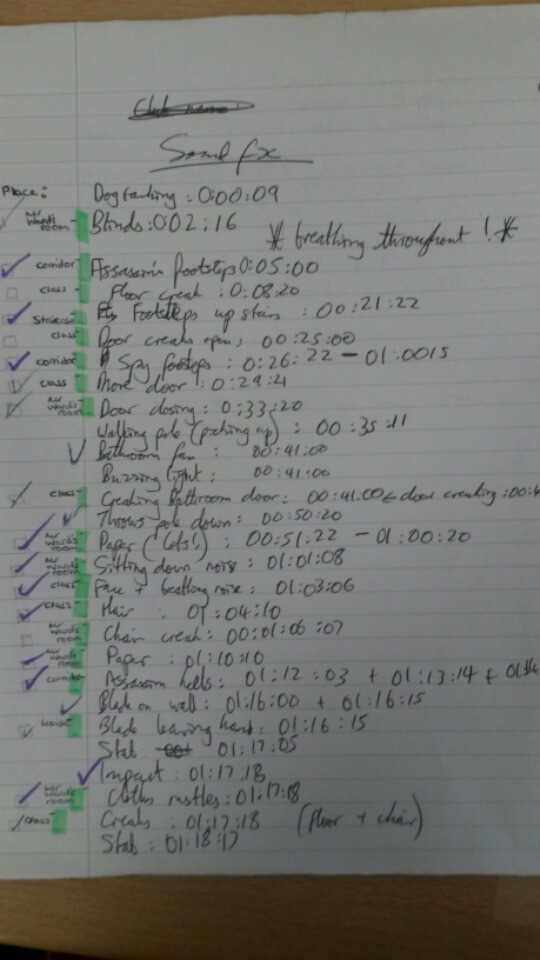 Sound fx
Place:
Dog barking : 0:00:09
Mr Wards room Blinds : 002:16
* breathing throughout ! *
corridor Assassins footsteps 0:05:00
class Floor creak : 0:08:20
Staircase Footsteps up stairs : 00:21:22
class Door creaks open : 00:25:00
corridor Spy footsteps : 0:26:22 - 01:0015
class More door : 0:29:21
Mr Wards room Door closing : 0:33:20
Walking pole (picking up) : 00:35:11
Bathroom fan : 00:41:00
Buzzing light : 00:41:00
class Creaking Bathroom door : 00:41:00 & door creaking : 00:4
Throws pole down : 00:50:20
Mr Wards room Paper (lots!) : 00:51:22 - 01:00:20
Mr Wards room Sitting down noise : 01:01:08
class Face + breathing noise : 01:03:06
class Hair : 01:04:10
Mr Wards room Chair creak : 00:01:06:07
Mr Wards room Paper : 01:10:10
corridor Assassin heels : 01:12:03 + 01:13:14 +
Blade on wall : 01:16:00 + 01:16:15
House Blade leaving hand : 01:16:15
Stab 01:17:05
Impact : 01:17:18
Mr Wards room Clothes rustles : 01:17:18
class Creaks : 01:17:18 (floor + chair)
Stab : 01:18:17